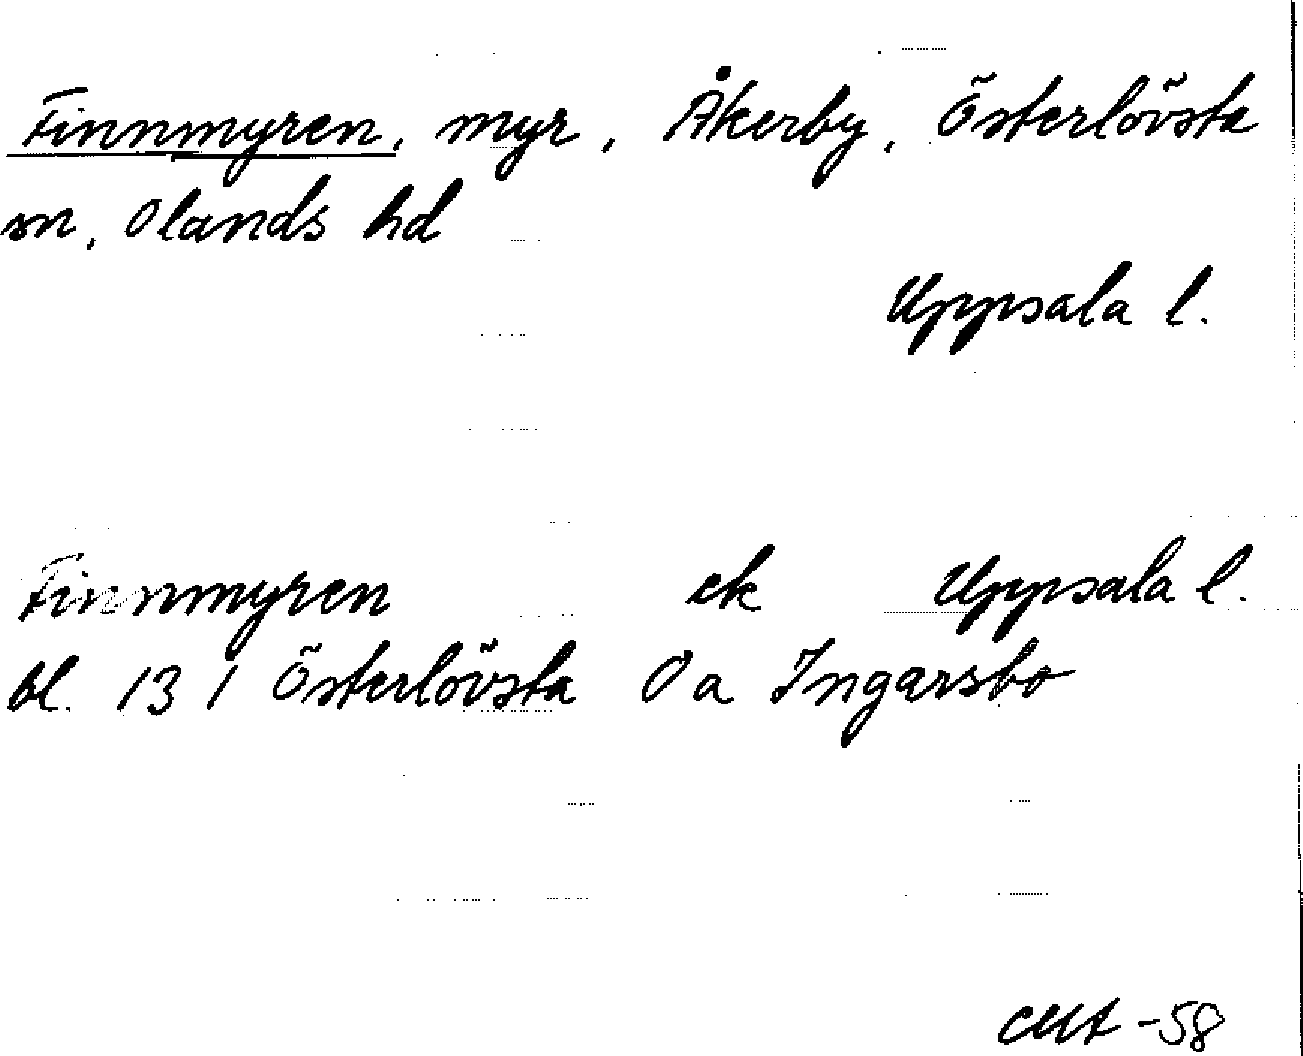 Finnmyren, myr, Åkerby, Österlövsta
sn, Olands hd
Uppsala l.
Finnmyren ek Uppsala l.
bl. 131 Österlövsta Oa Ingarsbo
-58